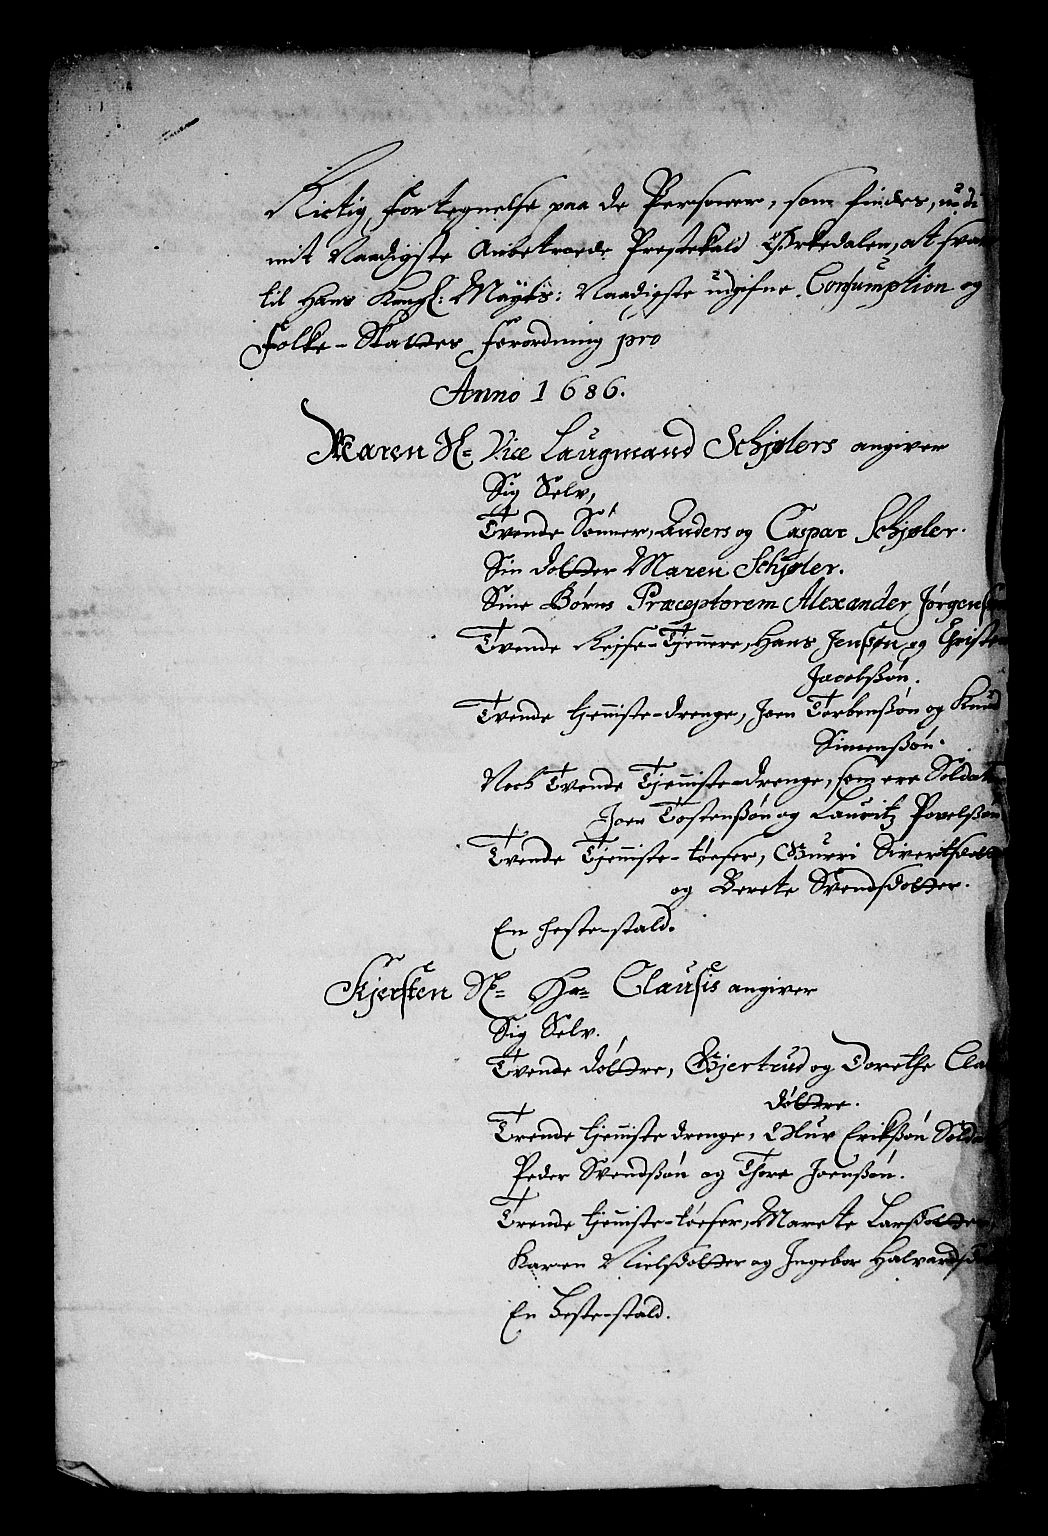 Rictig Fortegnelse paa de Personer, som findes, udi
mit Naadigste Anbetroede Prestekald Ørkedalen, at sva
til Hans Kongl: Mayts: Naadigste udgifne Consumption og
Folke-Skatters Forordning pro
Anno 1686.
Maren Sl= Vice Laugmand Schjølers angiver
Sig Selv,
Tvende Sønner, Anders og Caspar Schjøler.
Sin dotter Maren Schjøler.
Sine Børns Præceptorem Alexander Jørgens
Tvende Rejse-Tjenere, Hans Jensøn og Christen
Jacobsøn.
Tvende tjeniste-drenge, Joen Torbensøn og Knud
Simensøn.
Noch Tvende Tjeniste-drenge, som ere Soldat
Joen Tostensøn og Lauritz Povelsøn
Tvende Tjeniste-tøeser, Gurri Sivertsdott
og Berete Svendsdotter.
En heste-stald.
Kjersten Sl= Hr= Clausis angiver
Sig Selv.
Tvende døttre, Gjertrud og Dorethe Cla
døttre.
Trende tjeniste drenge, Oluv Eriksøn Solda
Peder Svendsøn og Thore Joensøn.
Trende tjeniste-tøeser, Marete Larsdotter,
Karen Nielsdotter og Ingebor Halvardsd
En Heste-stald.